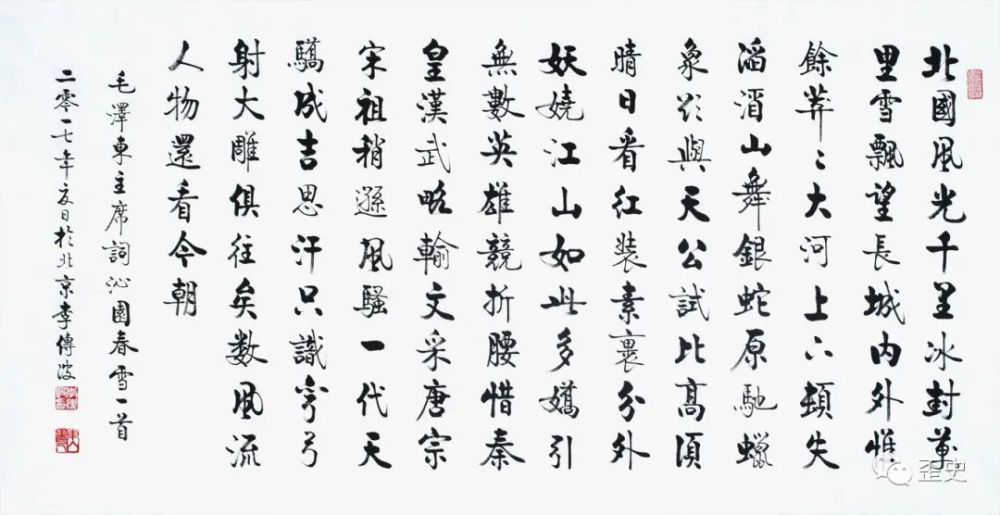 北國風光千里冰封萬
里雪飄望長城內外惟
餘莽〻大河上下頓失
滔滔山舞銀蛇原馳蠟
象欲與天公試比高須
晴日看紅裝素裹分外
妖嬈江山如此多嬌引
無數英雄競折腰惜秦
皇漢武略輸文采唐宗
宋祖稍遜風騷一代天
驕成吉思汗只識彎弓
射大雕俱往矣数風流
人物還看今朝
毛澤東主席詞沁園春雪一首
二零一七年夏日於北京李傳波
歪史